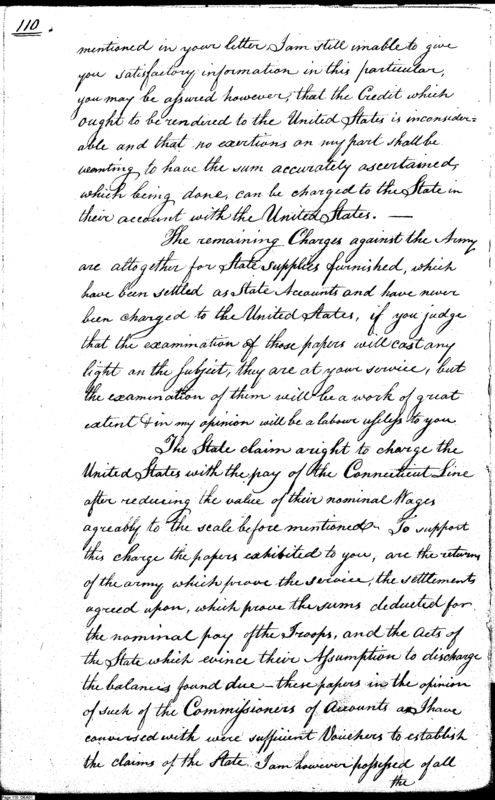 110
mentioned in your letter, I am still unable to give
you satisfactory information in this particular,
you may be assured however, that the Credit which
ought to be rendered to the United States is inconsider=
able and that no exertions on my part shall be
wanting to have the sum accurately ascertained,
which being done, can be charged to the State in
their account with the United States. —
The remaining Charges against the Army
are altogether for State supplies furnished, which
have been settled as State Accounts and have never
been charged to the United States, if you judge
that the examination of those papers will cast any
light on the subject, they are at your service, but
the examination of them will be a work of great
extent & in my opinion will be a labour useless to you
The State claim a right to charge the
United States with the pay of the Connecticut Line
after reducing the value of their nominal Wages
agreably to the scale before mentioned. To support
this charge the papers exhibited to you, are the returns
of the army which prove the service, the settlements
agreed upon, which prove the sums deducted for
the nominal pay of the Troops, and the Acts of
the State which evince their Assumption to discharge
the balances found due — these papers in the opinion
of such of the Commissioners of Accounts as I have
conversed with were sufficient Vouchers to establish
the claims of the State. I am however possessed of all
the